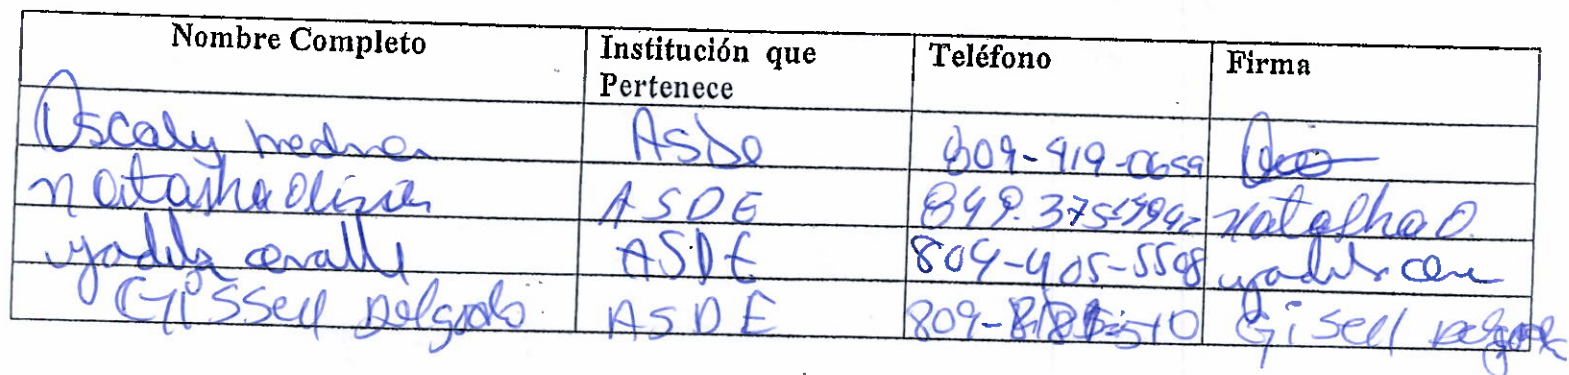 Nombre Completo Institución que Pertenece Teléfono Firma
Oscaly medina ASDE 809-919-0659
natasha olivia ASDE 849-375-9942 natasha O.
yadila cavalli ASDE 809-405-5598
Gissell Delgado ASDE 809- Gisell Delgado